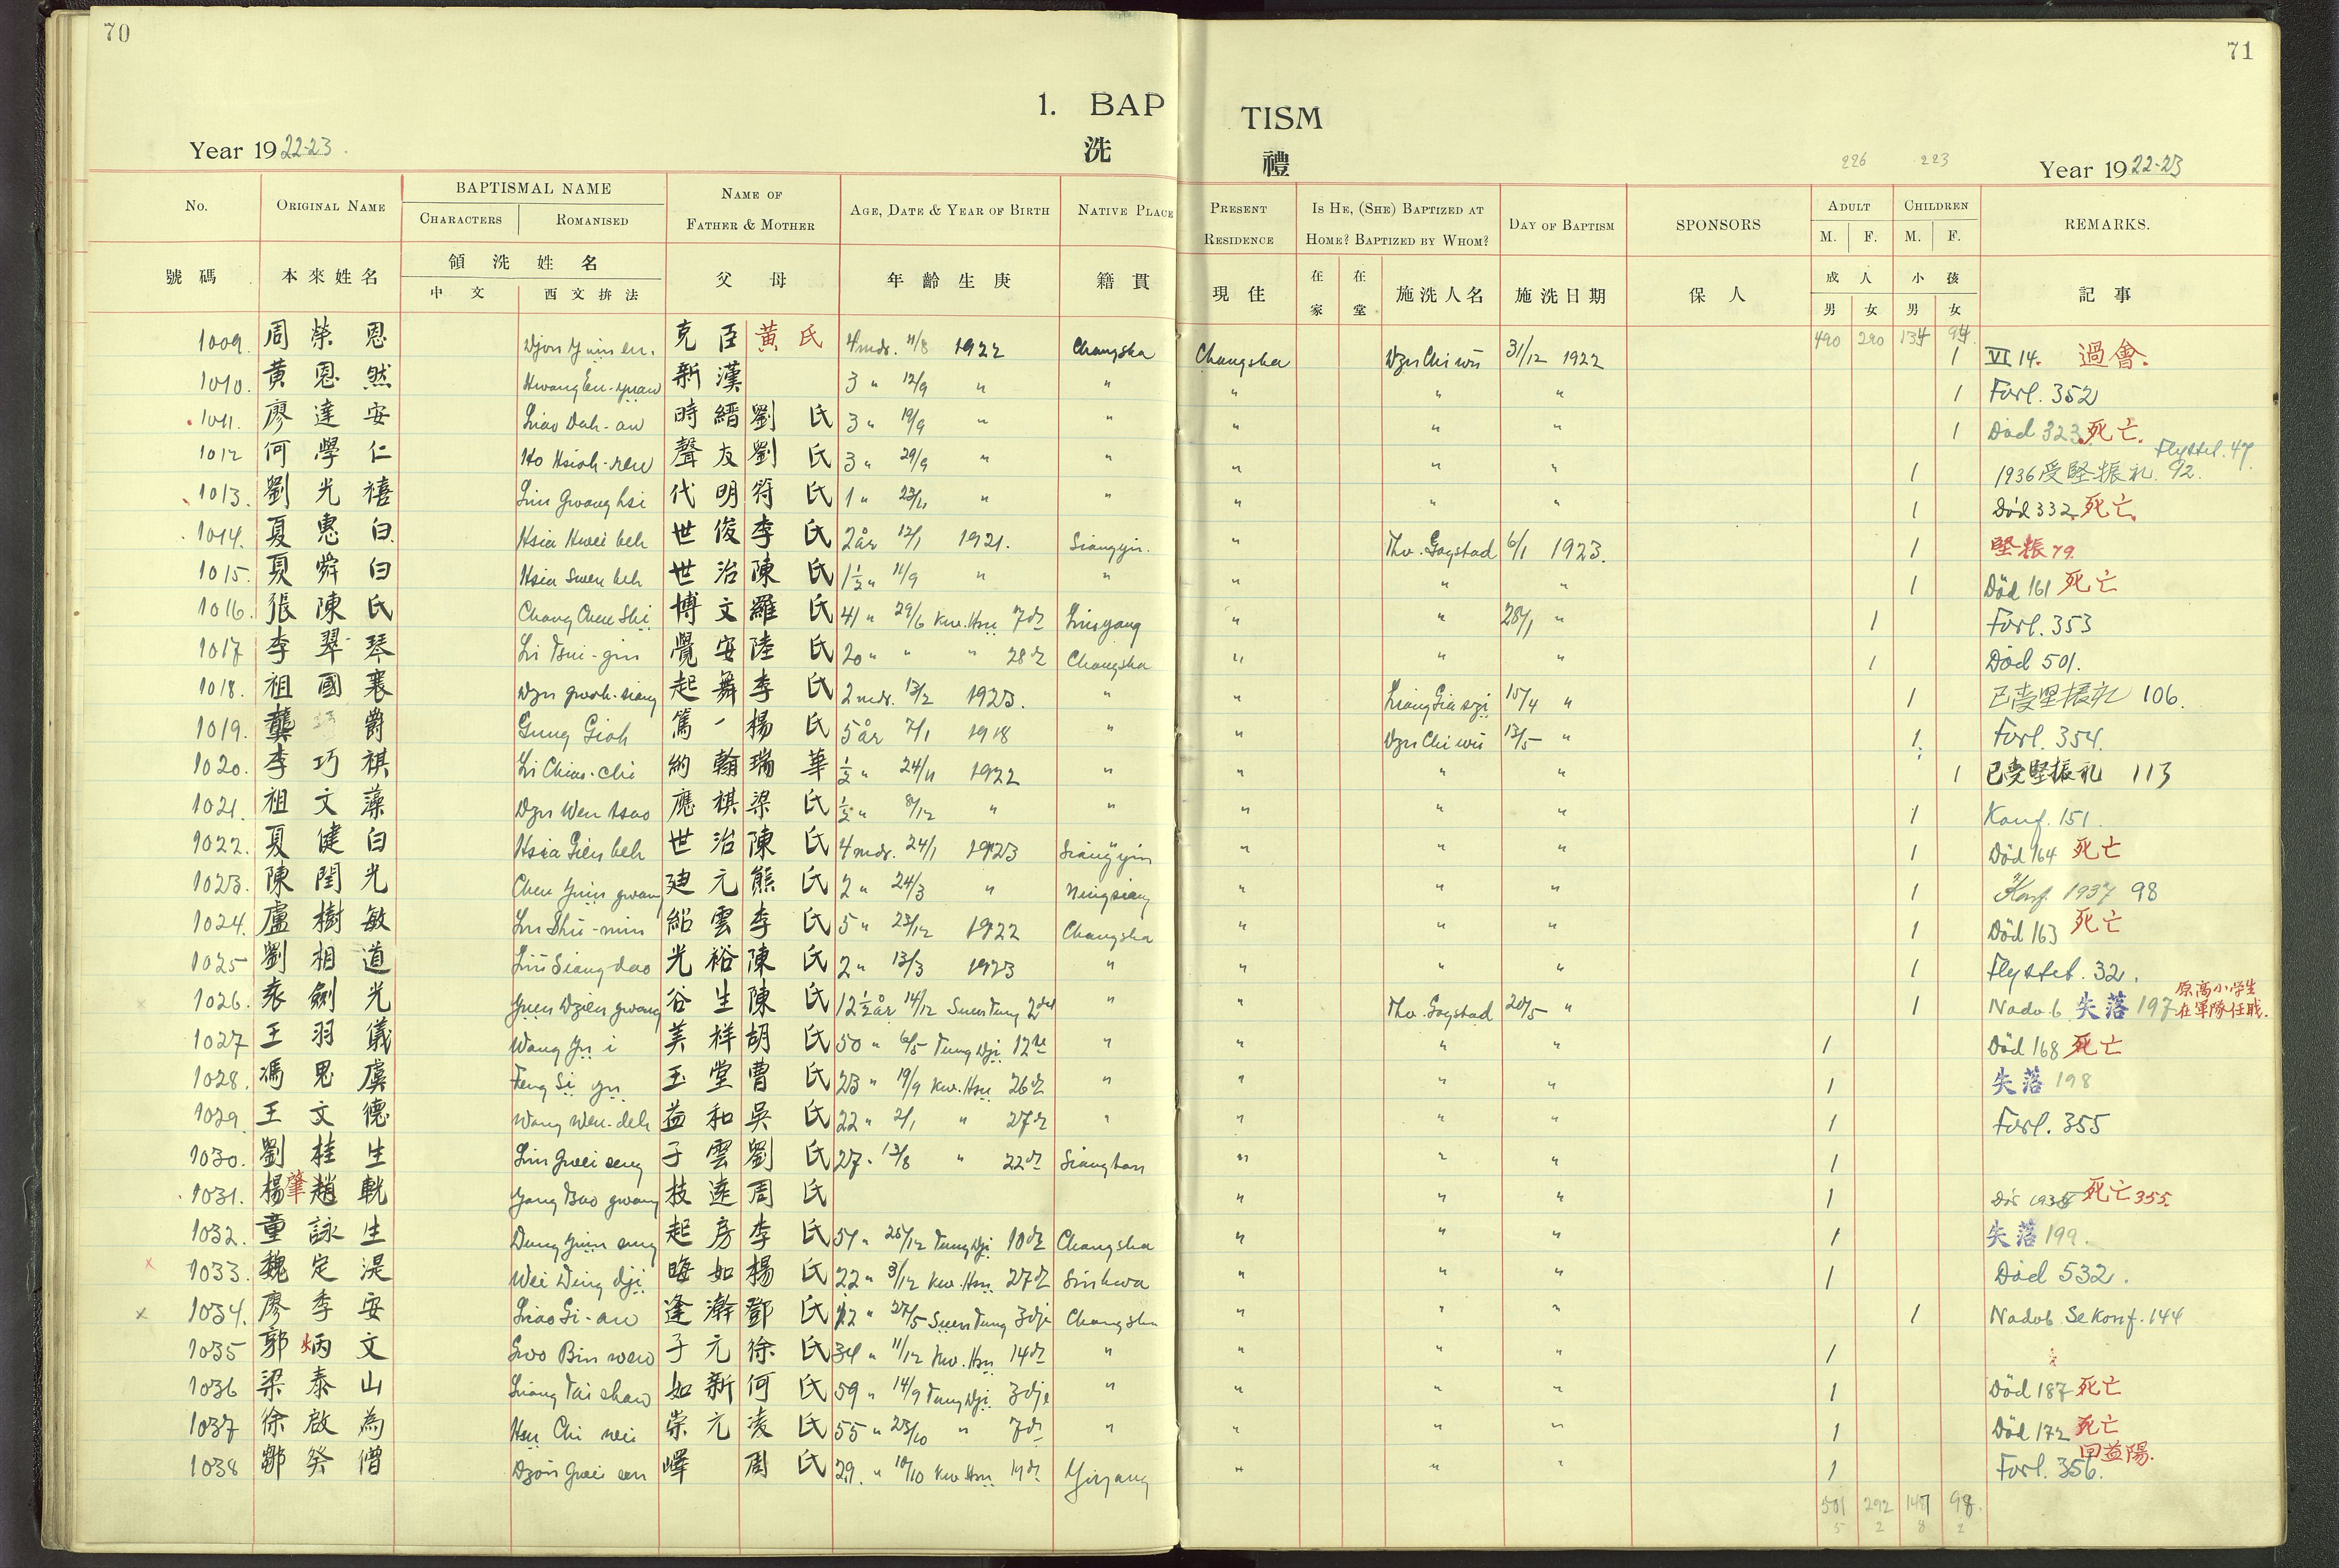 70
71
1. BAP TISM
洗 禮
Year 19 22-23.
226 223
Year 19 22-23
No. ORIGINAL NAME BAPTISMAL NAME NAME OF FATHER & MOTHER AGE, DATE & YEAR OF BIRTH NATIVE PLACE PRESENT RESIDENCE IS HE, (SHE) BAPTIZED AT HOME? BAPTIZED BY WHOM? DAY OF BAPTISM SPONSORS ADULT CHILDREN REMARKS.
CHARACTERS ROMANISED M. F. M. F.
號碼 本來姓名 領洗姓名 父母 年齡生庚 籍貫 現住 在家 在堂 施洗人名 施洗日期 保人 成人 小孩 記事
中文 西文拚法 男 女 男 女
490 290 134 94
1009. 周榮恩 克臣 黃氏 4 mdr. 11/8 1922 Changsha Changsha Dzu Chi wu 31/12 1922 1 VI 14. 過會.
1010. 黃恩然 Hwang En-yuan 新漢 3 " 12/9 " " " " " 1 Forl. 352
1011. 廖達安 Liao Dah-an 時縉 劉氏 3 " 19/9 " " " " " 1 Död 323. 死亡.
1012 何學仁 Ho Hsioh-ren 聲友 劉氏 3 " 29/9 " " " " " 1 1936 受堅振礼. 92. Flyttet. 47.
1013. 劉光禧 Liu Gwang hsi 代明 符氏 1 " " " " " " 1 Död 332. 死亡.
1014. 夏惠白 Hsia Hwei beh 世俊 李氏 2 år 12/1 1921. Siangyin. " Thv. Gogstad 6/1 1923. 1 堅振 79.
1015. 夏舜白 Hsia Swen beh 世治 陳氏 1½ " 11/9 " " " " " 1 Död 161 死亡
1016. 張陳氏 Chang Chen Shi 博文 羅氏 41 " 29/6 Kw. Hsu 7 " " 28/1 " 1 Forl. 353
1017 李翠琴 Li Tsui-gin 覺安 陸氏 20 " " " 28 Changsha " " " 1 Död 501.
1018. 祖國襄 Dzu gwoh-siang 起舞 李氏 2 mdr. 13/2 1923. " " Liang Gia szi 15/4 " 1 已受堅振礼 106.
1019. 龔爵 Gung Gioh 篤一 楊氏 5 år 7/1 1918 " " Dzu Chi wu 13/5 " 1 Forl. 354.
1020. 李巧祺 Li Chiao-chi 約翰 瑞華 ½ " 24/11 1922 " " " " 1 已受堅振礼 113
1021. 祖文藻 Dzu Wen tsao 應祺 梁氏 ½ " 8/12 " " " " " 1 Konf. 151.
1022. 夏健白 Hsia Gien beh 世治 陳氏 4 mdr. 24/1 1923 Siangyin " " " 1 Död 164 死亡
1023. 陳閏光 Chen Yuin gwang 廸元 熊氏 2 " 24/3 " Ningsiang " " " 1 Konf. 1937 98
1024. 盧樹敏 Lu Shu-min 紹雲 李氏 5 " 23/12 1922 Changsha " " " 1 Död 163 死亡
1025 劉相道 Liu Siang dao 光裕 陳氏 2 " 13/3 1923 " " " " 1 Flyttet. 32.
x 1026. 袁劍光 Yuen Dzien gwang 谷生 陳氏 12½ år 14/12 Suen Tung 2 " " Thv. Gogstad 20/5 " 1 Nadv.b. 失落 197 原高小学生 在軍隊任職.
1027 王羽儀 Wang Yu i 美祥 胡氏 50 " 6/5 Tung Dji 12 " " " " 1 Död 168 死亡
1028. 馮思虞 Feng Si yu 玉堂 曹氏 23 " 19/9 Kw. Hsu 26 " " " " 1 失落 198
1029. 王文德 Wang Wen-deh 益和 吳氏 22 " 2/1 " 27 " " " " 1 Forl. 355
1030. 劉桂生 Liu Gwei seng 子雲 劉氏 27 " 13/8 " 22 Siangtan " " " 1
1031. 楊肇趙軦 Yang Tsao gwang 技遠 周氏 " " " 1 死亡 355.
1032. 童詠生 Dung Yuin seng 起房 李氏 51 " 25/12 Tung Dji 10 Changsha " " " 1 失落 199.
x 1033. 魏定湜 Wei Ding dji 晦如 楊氏 22 " 3/12 Kw. Hsu 27 Sinhwa " " " 1 Död 532.
x 1034. 廖季安 Liao Gi-an 逢瀚 鄧氏 12 " 27/5 Suen Tung 3dje Changsha " " " 1 Nadv.b. Se Konf. 144
1035 郭炳文 Gwo Bin wen 子元 徐氏 34 " 11/12 Kw. Hsu 14 " " " " 1
1036 梁泰山 Liang Tai shan 如新 何氏 59 " 14/9 Tung Dji 3dje " " " " 1 Död 187 死亡
1037 徐啟為 Hsu Chi wei 崇元 凌氏 55 " 23/10 " 7 " " " " 1 Död 172 死亡
1038 鄒癸僧 Dzou Gwei sen 嶧 周氏 29. " 10/10 Kw. Hsu Yiyang " " " 1 Forl. 356. 回益陽.
501 292 147 98.
5 2 8 2